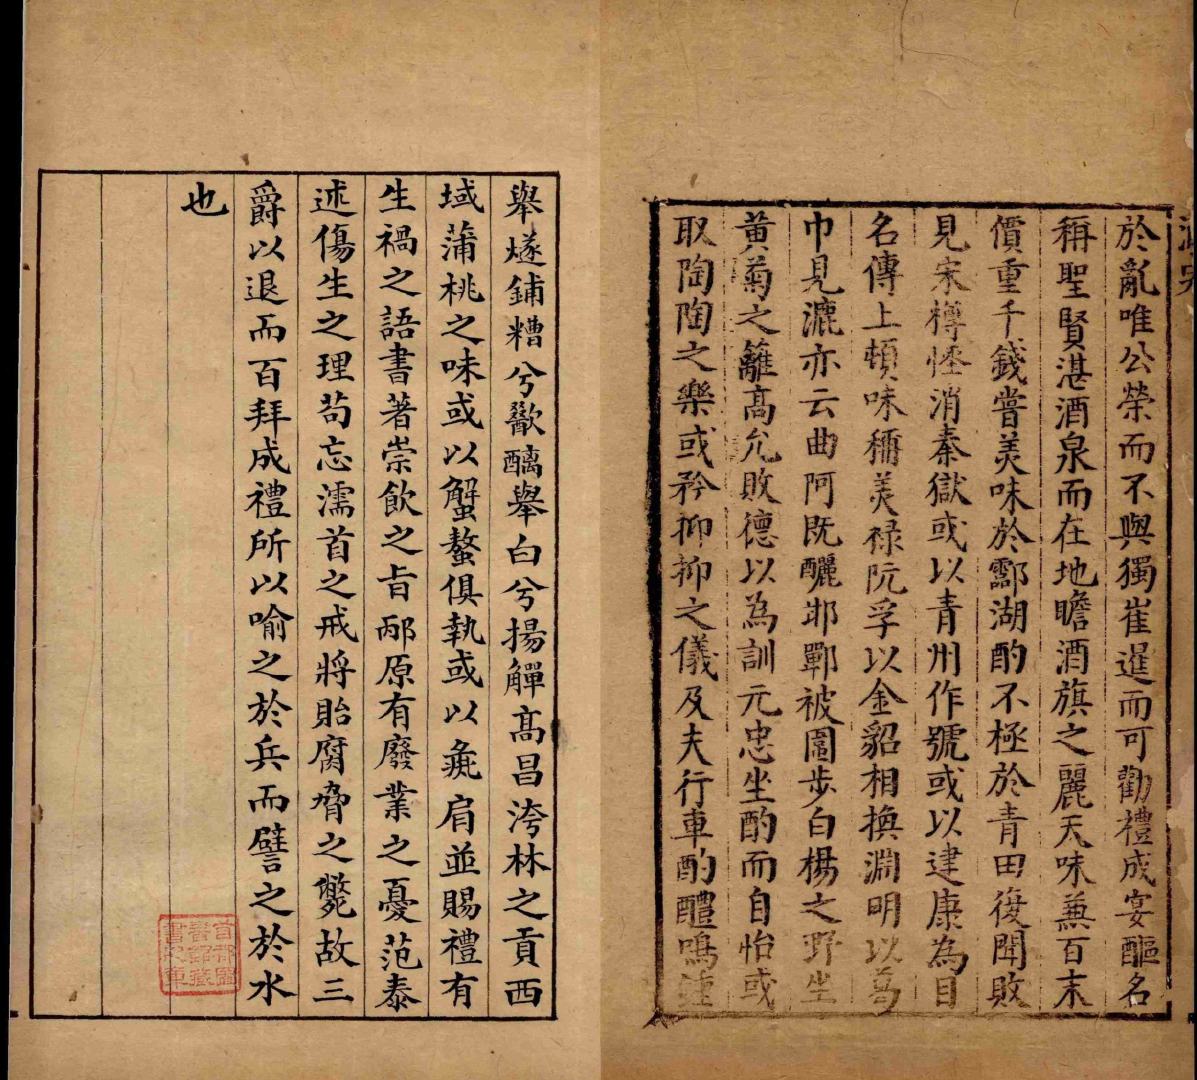 於亂唯公榮而不與獨崔暹而可勸禮成宴醧名
稱聖賢湛酒泉而在地瞻酒旗之麗天味兼百末
價重千錢嘗美味於酃湖酌不極於青田復聞敗
見宋樽怪消秦獄或以青州作號或以建康為目
名傳上頓味稱美祿阮孚以金貂相換淵明以葛
巾見漉亦云曲阿既釃邯鄲被圍步白楊之野坐
黃菊之籬高允敗德以為訓元忠坐酌而自怡或
取陶陶之樂或矜抑抑之儀及夫行車酌醴鳴鍾
舉燧鋪糟兮歠醨舉白兮揚觶高昌洿林之貢西
域蒲桃之味或以蟹螯俱執或以彘肩並賜禮有
生禍之語書著崇飲之旨邴原有廢業之憂范泰
述傷生之理苟忘濡首之戒將貽腐脅之斃故三
爵以退而百拜成禮所以喻之於兵而譬之於水
也